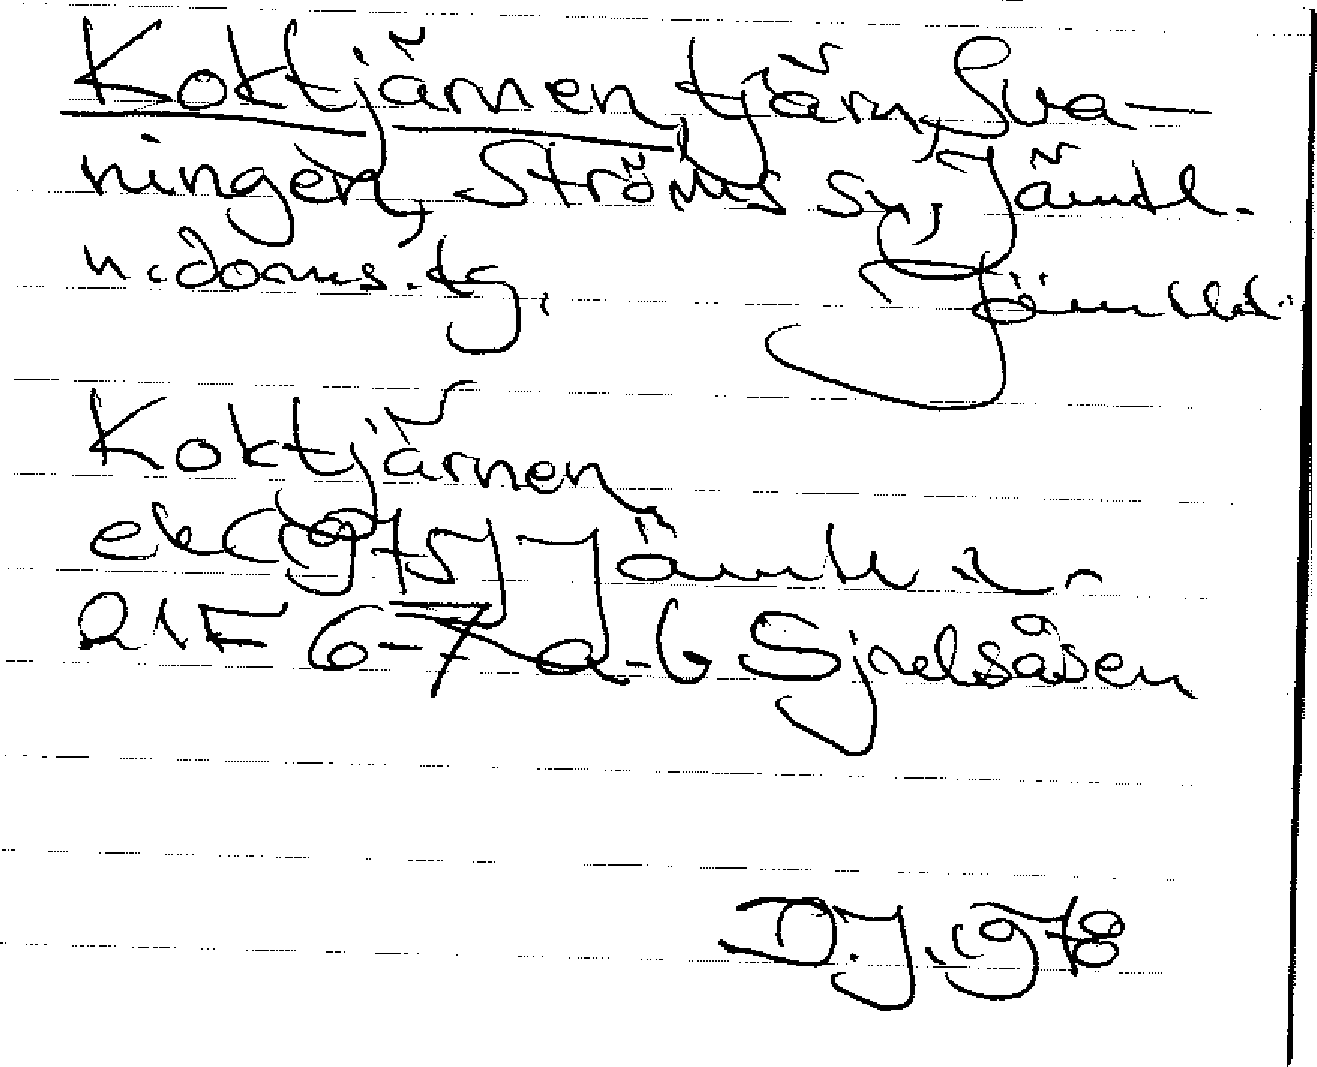 Koktjärnen, tjärn, Sva-
ningen, Ströms sn, Jämtl.
n. doms. tg. Jämtld.
Koktjärnen
ek (1975) Jämtl. l.
21F 6-7 a-b Sjoelsåsen
D.J. 1978